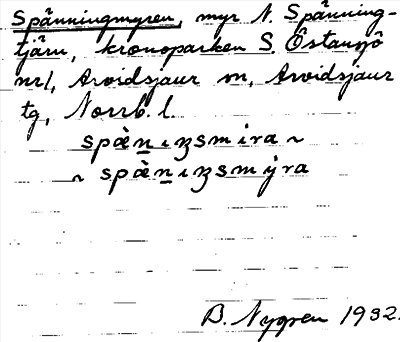 Spånningmyren, myr N. Spånning-
tjärn, kronoparken S. Östansjö
nr1, Arvidsjaur m, Arvidsjaur
tg, Norrb. l.
spæ̀nıŋsmira ~
~ spæ̀nıŋsmýra
B. Nygren 1932.